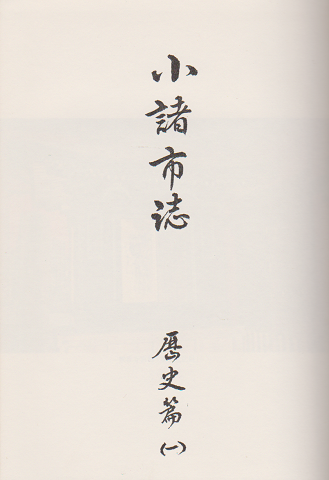 小諸市誌
歴史篇(一)